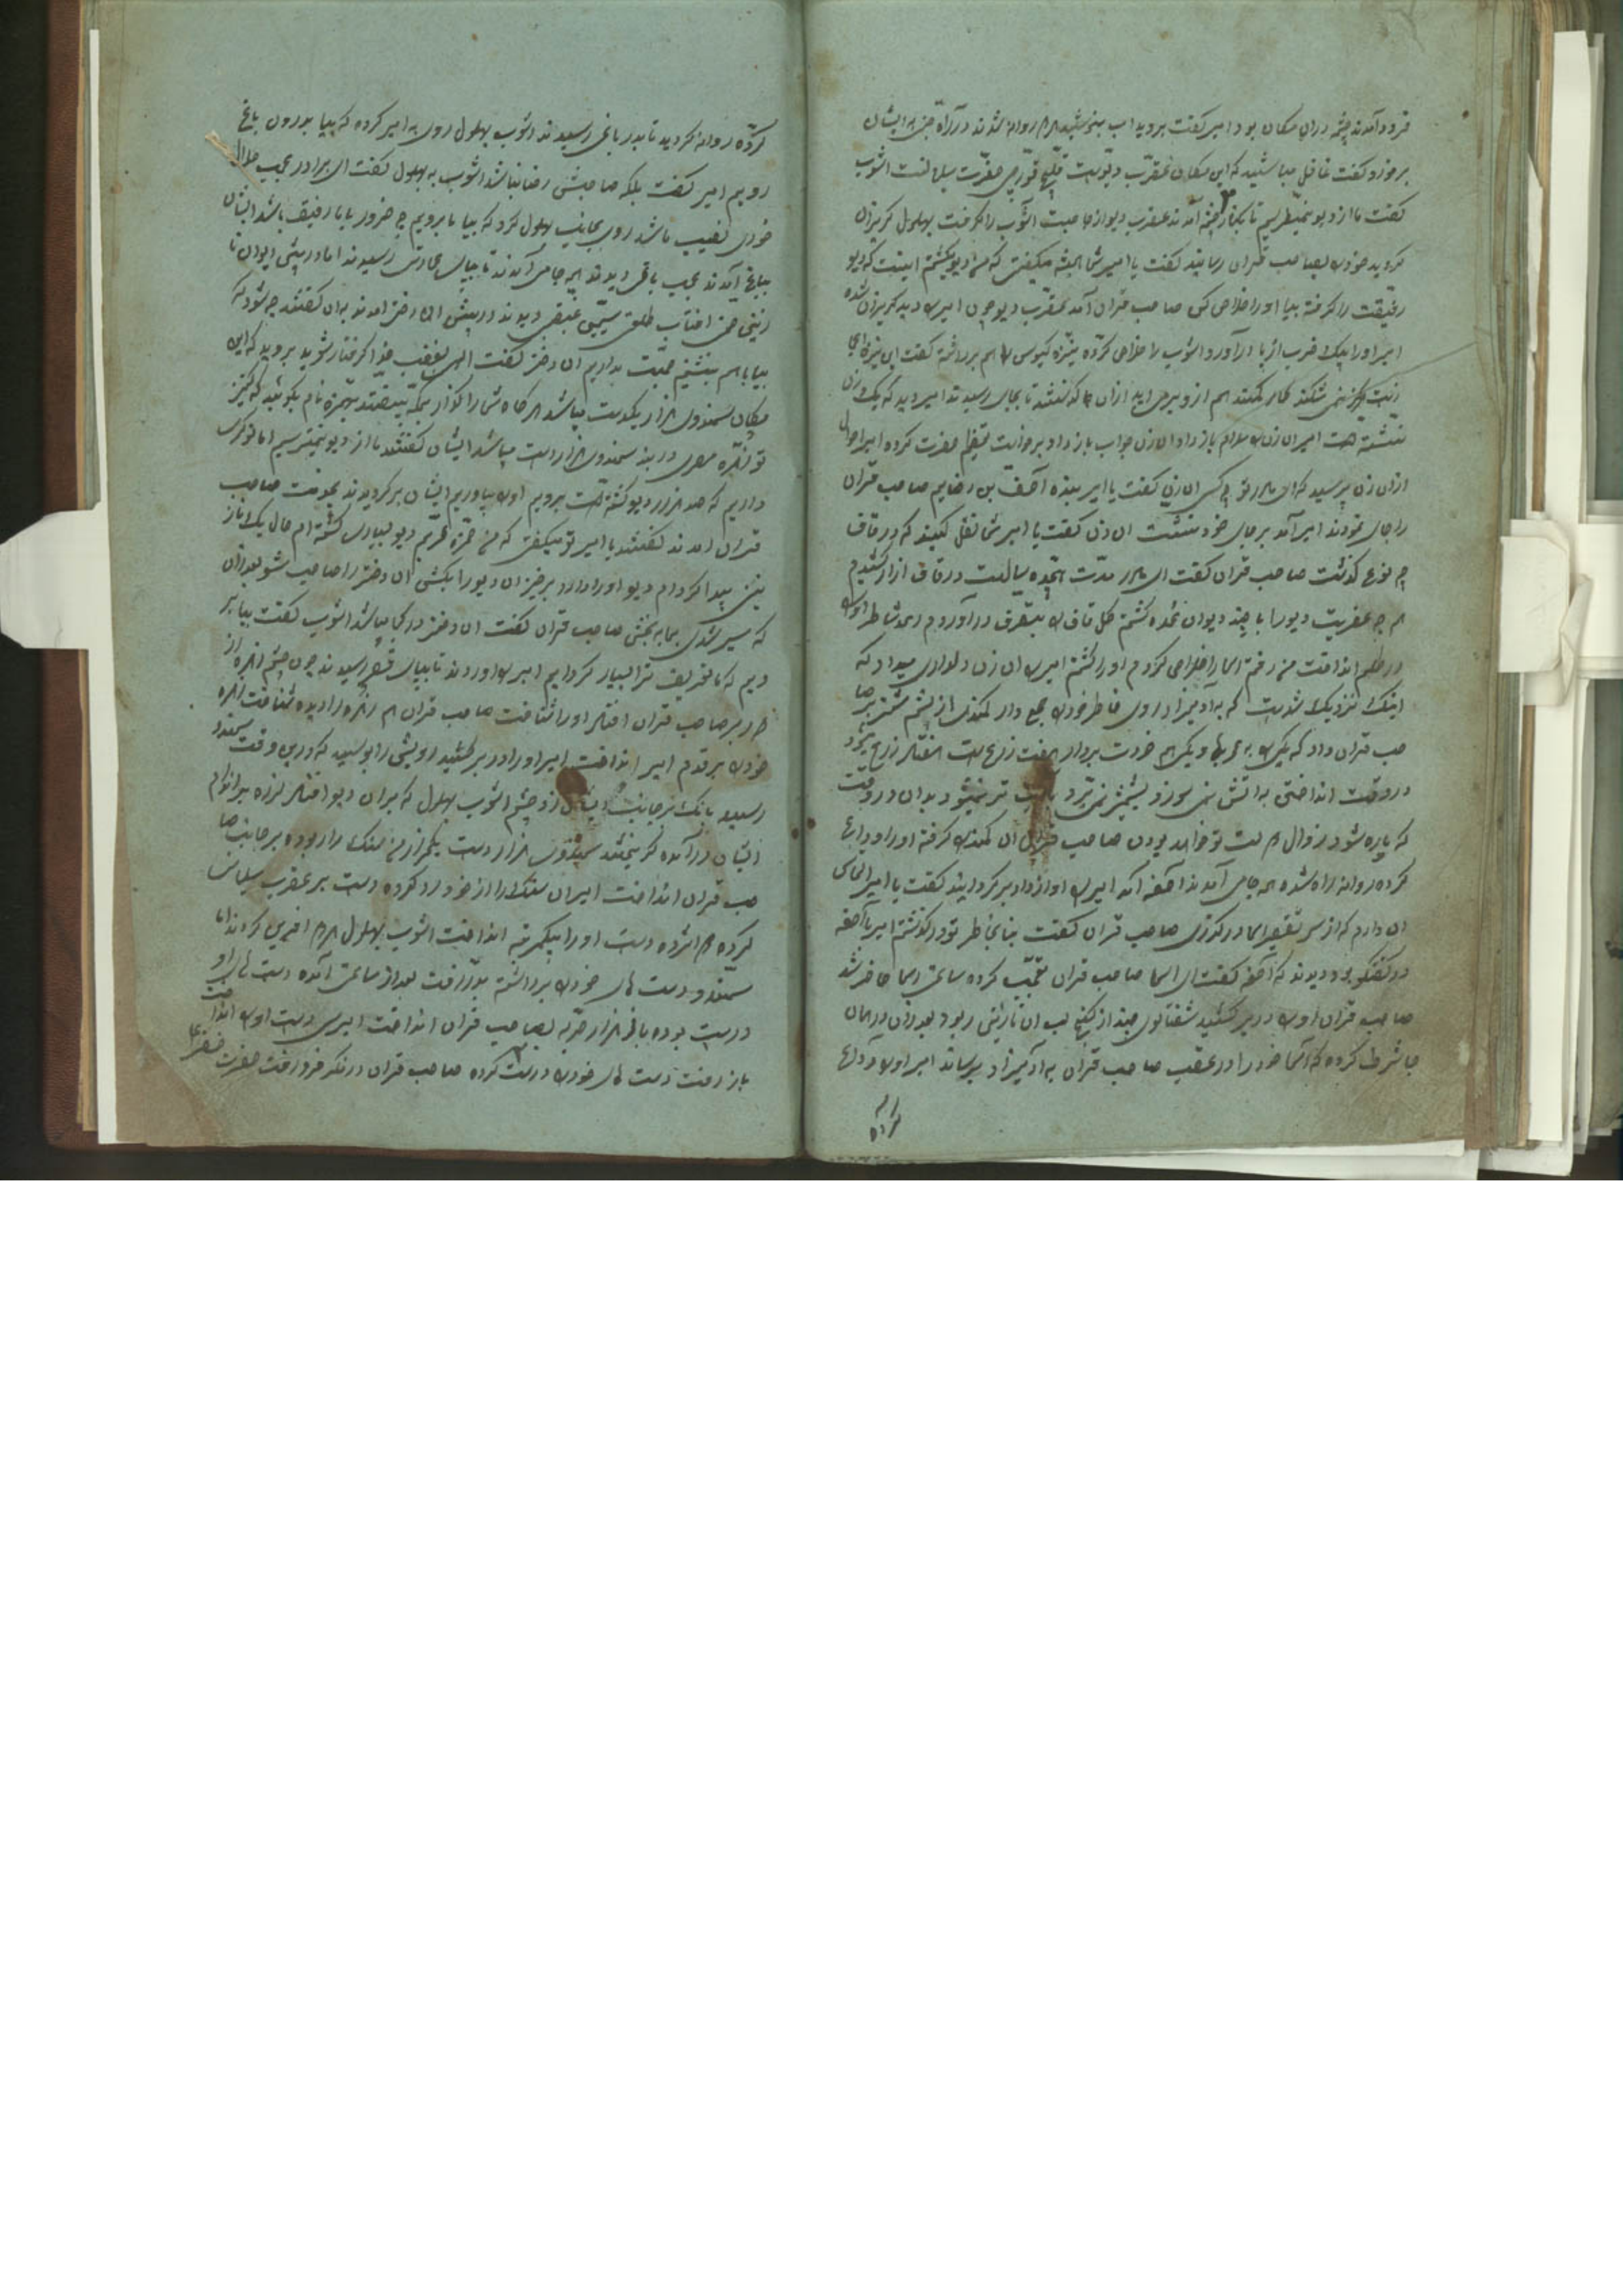 فرود آمدند چشمه دران مکان بود امیر گفت بروید اب بنوشید هردو روانه شدند در راه جنی به ایشان
برخورد گفت غافل مباشید که این مکان عقرب دیوست حضرت سلیمانست اشوب
گفت ما از دیو نمیترسیم تا بکنار چشمه آمدند عقرب دیو از جا جست آشوب را گرفت بهلول گریزان
گردید خودرا بصاحب قران رسانید گفت یا امیر شما همیشه میگفتی که من دیو میکشم اینست که دیو
رفیقت را گرفته بیا اورا خلاص کن صاحب قران آمد عقرب دیو چون امیر را دید گریزان شده
امیر اورا بیک ضرب از پا درآورد و اشوب را خلاص کرده نیزه کیومرس را هم برداشته گفت این نیزه
هرگز نمی شکند هم از ازان جا گذشتند تا بجای رسیدند امیر دید که یک زن
نشسته است امیر ان زن را سلام باز داد ان زن جواب باز داد برخواست تعظیم حضرت کرده امیر احوال
ازان زن پرسید که ای مادر تو چه کسی ان زن گفت یا امیر بنده آصف بن رخایم صاحب قران
را جای نمودند امیر آمد بر جای خود بنشست ان زن گفت یا امیر شما نقل بکنید که در قاف
چه نوع گذشت صاحب قران گفت ای مادر مدت هجده سالست در قاف ازار کشیدم
هم چه عفریت دیو را با چند دیوان عمده کشتم کل قاف را بتصرف درآوردم رعد شاطر اورا
در طلسم انداخت من رفتم اسما را خلاص کردم اورا کشتم امیر را ان زن دلداری میداد که
اینک نزدیک شدست که به آدمیزاد روی خاطر خودرا جمع دار کمندی از پشم شتر بصا
حب قران داد که یکسر به
در وقت انداختن به اتش نمی سوزد بشمشیر نمی برد به آب تر نمیشود بدان در وقت
که پاره شود زوال دولت تو خواهد بودن صاحب قران ان کمند را گرفته اورا وداع
کرده روانه راه شده همه جا می آمدند آصفه آمد امیر را اواز داد برگردانید گفت یا امیر التماس
ان دارم که از سر تقصیر اسما درگذری صاحب قران گفت بنا بخاطر تو درگذشتم امیر با آصفه
در گفتگو بود دیدند که آصفه گفت ای اسما صاحب قران تعجب کرده ساعتی اسما حاضر شد
صاحب قران اورا در بر کشید شفتالوی چند از کنج لب ان نازنین ربود بعد ازان در همان
جا شرط کرده که اسما خود را در عقب صاحب قران به آدمیزاد برساند امیر اورا وداع
کرده
کرده روانه گردید تا بدر باغی رسیدند اشوب بهلول روی به امیر کرده که بیا بدرون باغ
رویم امیر گفت بلکه صاحبش رضا نباشد اشوب به بهلول گفت ای برادر عجب حلال
خوری نصیب ما شد روی بجانب بهلول کرد که بیا ما برویم چه ضرور با ما رفیق باشد ایشان
بباغ آمدند عجب باغی دیدند همه جا می آمدند تا بپای عمارتی رسیدند اما در پیش ایوان نا
زنینی چون افتاب طلعتی سیمین غبغبی دیدند در پیش ان دختر امدند به ان گفتند چه شود که
بیا با هم بنشینیم صحبت بداریم ان دختر گفت الهی بغضب خدا گرفتار شوید بروید که این
مکان سمندون هزار یکدست میباشد هرگاه شما را گذار بمکه بیفتد بحمزه نام بگوئید که کنیز
تو زهره مصری در بند سمندون هزار دست میباشد ایشان گفتند ما از دیو نمیترسیم اما نوکری
داریم که صد هزار دیو کشته است برویم اورا بیاوریم ایشان برگردیدند بخدمت صاحب
قران امدند گفتند یا امیر تو میگفتی که من حمزه عربم دیو بسیاری کشته ام حال یک ناز
نین پیدا کردام دیو اورا دارد برخیز ان دیو را بکشی ان دختر را صاحب شو بعد ازان
که سیر شدی بما به بخش صاحب قران گفت ان دختر در کجا میباشد اشوب گفت بیا بر
ویم که ما تعریف ترا بسیار کردایم امیر را اوردند تا بپای قصر رسیدند چون چشم زهره از
دور بر صاحب قران افتاد اورا شناخت صاحب قران هم زهره را دیده شناخت زهره
خودرا بر قدم امیر انداخت امیر اورا در بر کشید رویش را بوسید که درین وقت سمندون
رسید بانک بر جانب ایشان زد چشم اشوب بهلول که بران دیو افتاد لرزه بر اندام
ایشان درآمده گریختند سمندون هزار دست یک هزار من سنک را ربوده بر جانب صا
حب قران انداخت امیر ان سنک را از خود رد کرده دست بر عقرب سلیمانی
کرده دست اورا بیکمرتبه انداخت اشوب بهلول هردو افرین کردند اما
سمندون دست های خودرا برداشته بدر رفت بعد از ساعتی آمده دست های او
درست بوده باز هزار حربه بصاحب قران انداخت امیر دست اورا انداخت
باز رفت دست های خودرا درست کرده صاحب قران در فکر فرو رفت حضرت خضر